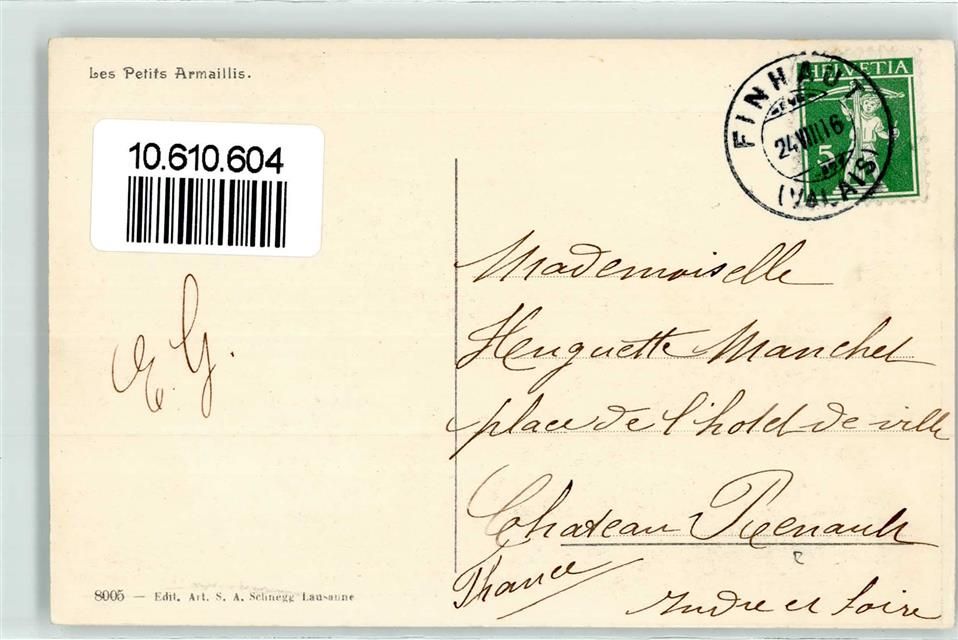 Les Petits Armaillis.
10.610.604
HELVETIA
5
FINHAUT
24 VIII 16
(VALAIS)
E. G.
Mademoiselle
Huguette Manchet
place de l'hotel de ville
Chateau Renault
France
Indre et Loire
8005 — Edit. Art. S. A. Schnegg Lausanne